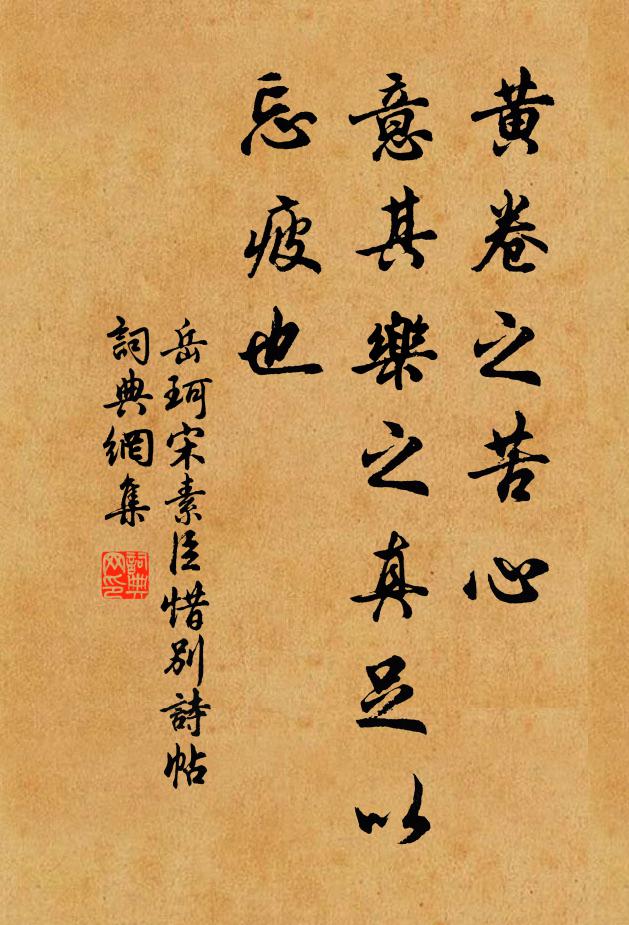 黃卷之苦心
意其樂之真足以
忘疲也
岳珂宋素臣惜別詩帖
詞典網集
詞典
网印